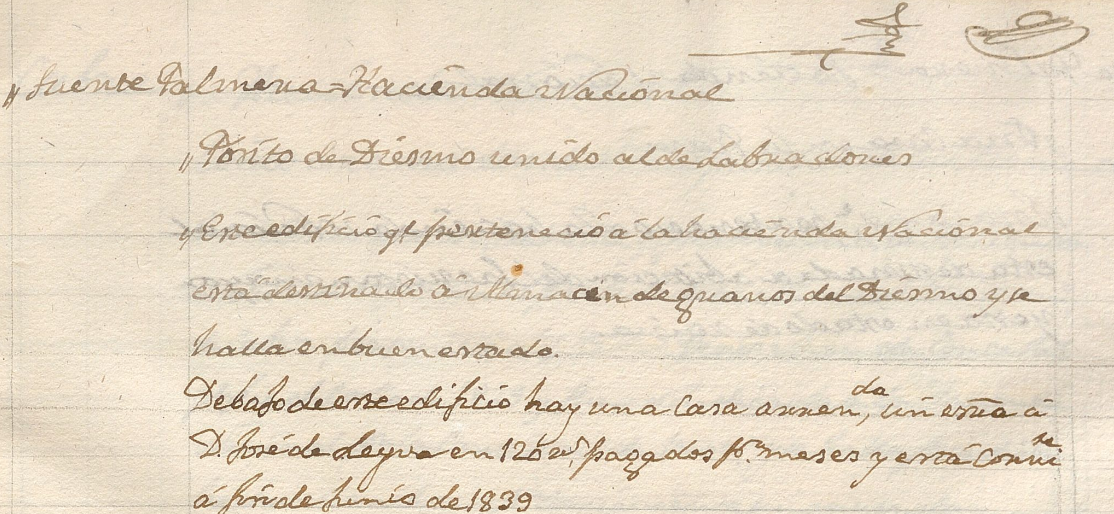 " Fuente Palmera = Hacienda Nacional
" Posito de Diesmo unido al de Labradores
" Este edificio qe pertenecio a la hacienda Nacional
está destinado a Almacen de granos del Diesmo y se
halla en buen estado.
Debajo de este edificio hay una Casa arrenda,
D. José de Leyva en 120 rs. pagados pr. meses y está
á fin de Junio de 1839